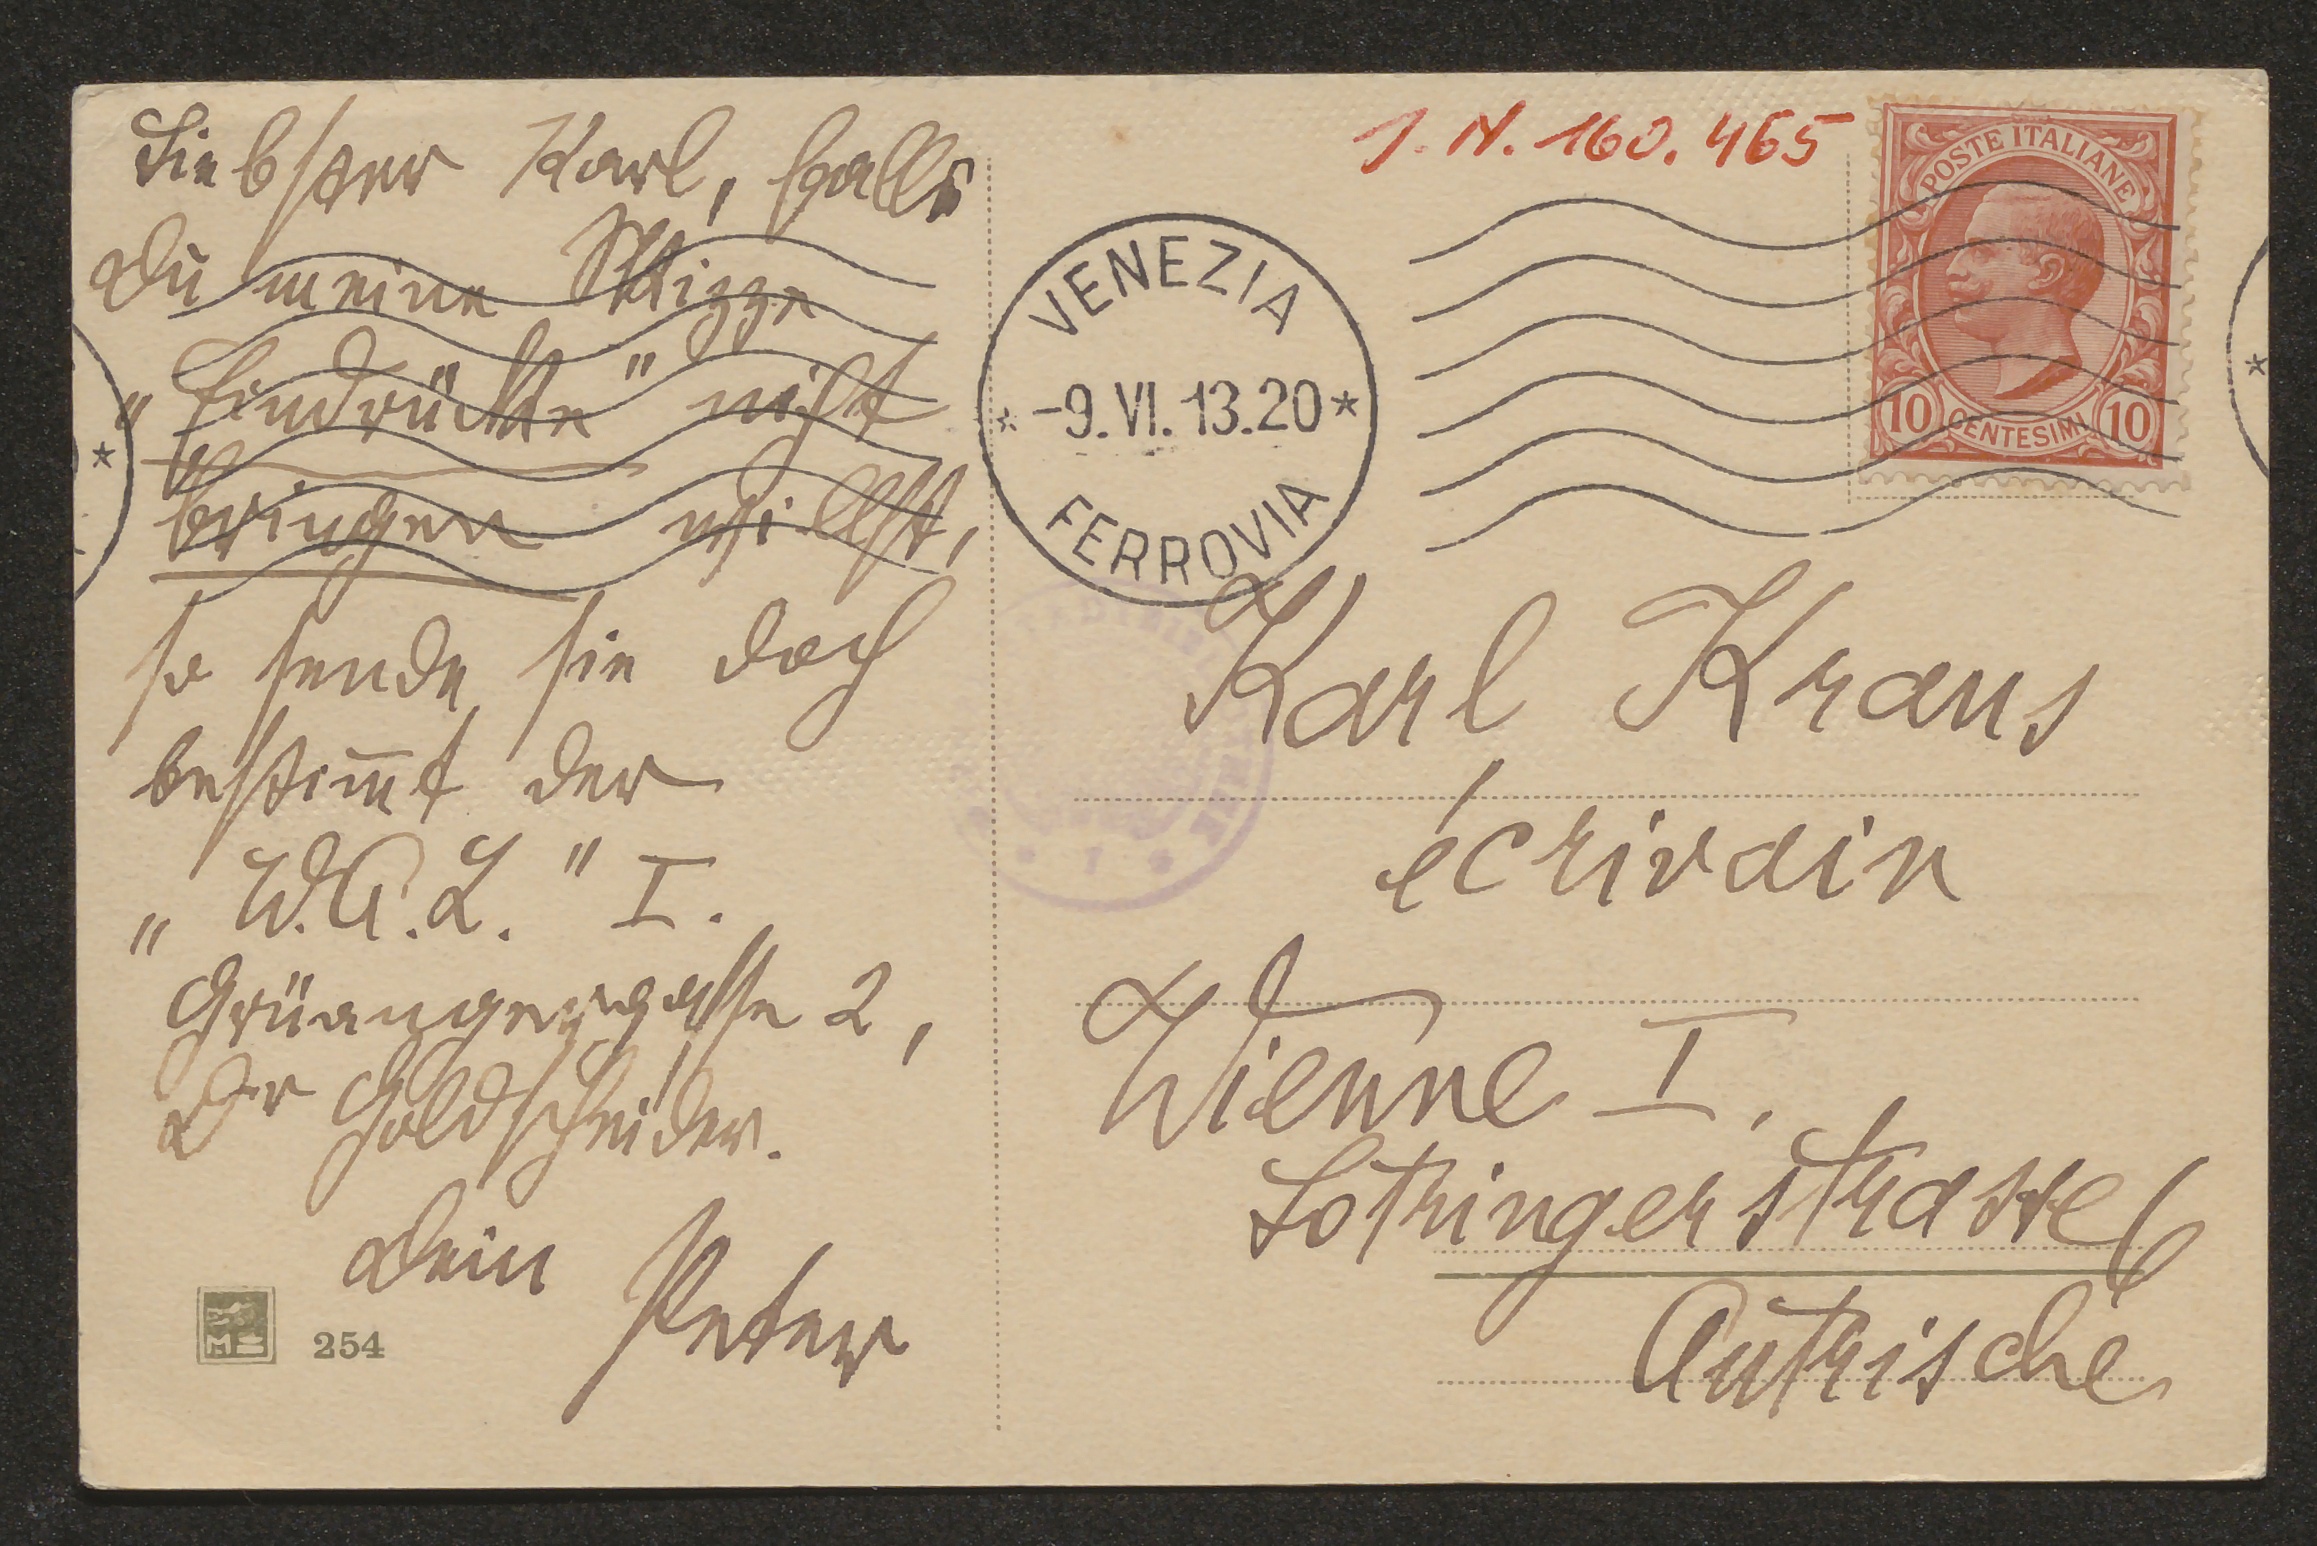 Liebster Karl, falls
Du meine Skizze
„Eindrücke" nicht
bringen willst,
so sende sie doch
bestim̅t der
„W.A.Z." I.
Grünangergasse 2,
Dr Goldscheider.
Dein
Peter
254
J. N. 160.465
POSTE ITALIANE
10 CENTESIMI 10
VENEZIA
-9.VI.13.20
FERROVIA
Karl Kraus
écrivain
Wienne I.
Lotringerstrasse 6
Autrische